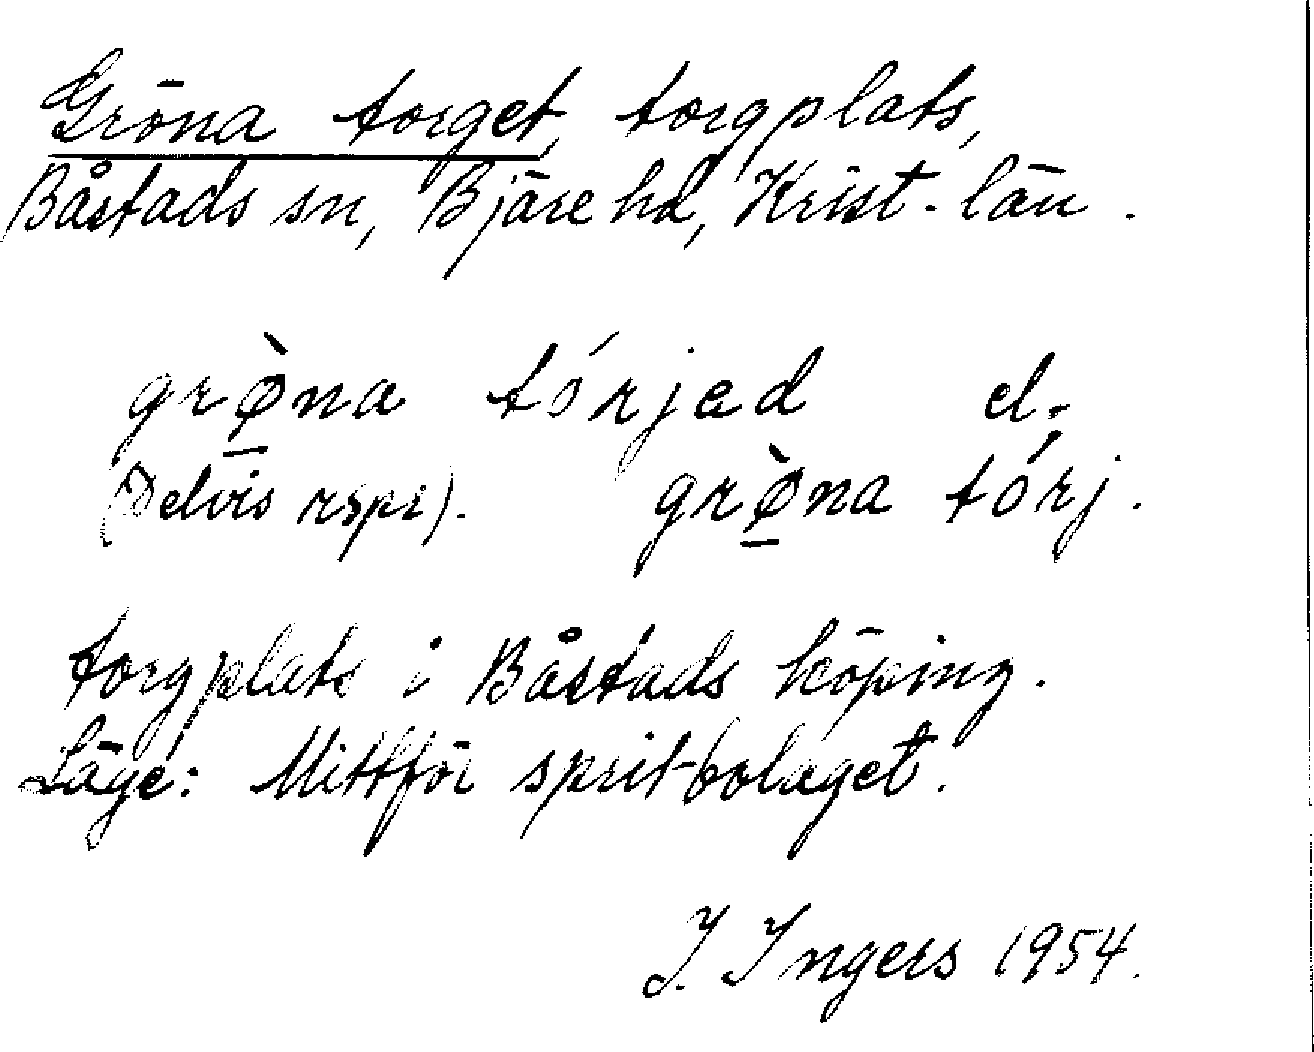 Gröna torget, torgplats,
Båstads sn, Bjäre hd, Krist. län.
grø̱̀na tórjad el.
(Delvis rspr). grø̱̀na tórj.
torgplats i Båstads köping.
Läge: Mittför spritbolaget.
I. Ingers 1954.